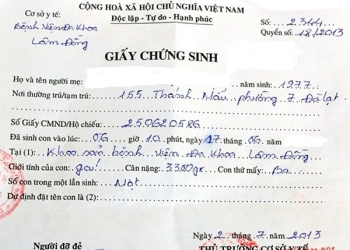 CỘNG HOÀ XÃ HỘI CHỦ NGHĨA VIỆT NAM
Độc lập - Tự do - Hạnh phúc
Cơ sở y tế:
Bệnh Viện Đa Khoa
Lâm Đồng
Số: 23444
Quyển số: 18/2013
GIẤY CHỨNG SINH
Họ và tên người mẹ: năm sinh: 1977
Nơi thường trú/tạm trú: 155 Thánh Mẫu phường 7 Đà Lạt
Số Giấy CMND/Hộ chiếu: 250620586
Đã sinh con vào lúc: 06 giờ 10 phút, ngày 27 tháng 06 năm
Tại (1): Khoa sản bệnh viện Đa Khoa Lâm Đồng
Giới tính của con: gái Cân nặng: 3300gr Con thứ mấy: Ba
Số con trong một lần sinh: Một
Dự định đặt tên con là (2):
Ngày 2 tháng 7 năm 2013
Người đỡ đẻ
THỦ TRƯỞNG CƠ SỞ Y TẾ